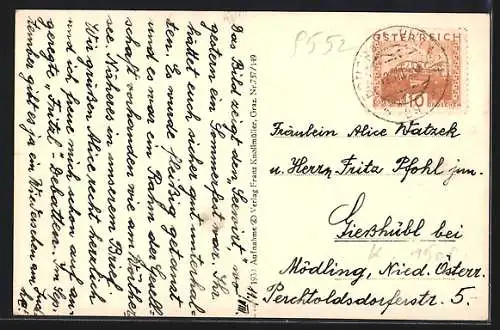 Das Bild zeigt den „Seewirt“ wo
gestern ein Sommerfest war. Ihr
hättet euch sicher gut unterhal-
ten. Es wurde fleißig getanzt
und es war ein Rahm der Gesell-
schaft vorhanden wie am Wörther
see. Näheres in unserem Brief.
Wir grüßen Alice recht herzlich
und ich freue mich schon auf an-
geregte „Fritzl“-Debatten. In Sep-
tember gibt es ja ein Wiedersehn am
VIII.
1931 Aufnahme © Verlag Franz Knollmüller, Graz. Nr. 757/149
P552
ÖSTERREICH
10
Fräulein Alice Watzek
u. Herrn Fritz Pfohl jun.
Gießhübl bei
Mödling, Nied. Österr.
Perchtoldsdorferstr. 5.